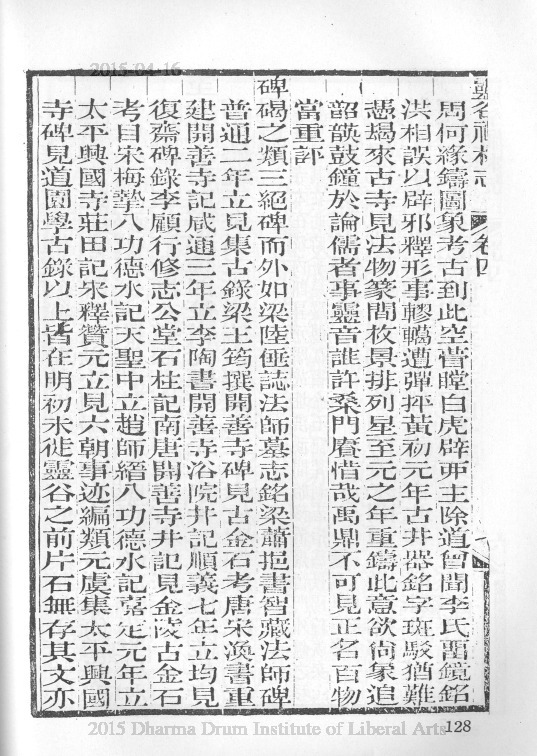 2015-04-16
靈谷禪林志 卷四
周何緣鑄圖象考古到此空瞢瞠白虎辟邪主除道曾聞李氏畱鏡銘
洪相誤以辟邪釋形事轇轕遭彈抨黃初元年古井器銘字斑駁猶難
憑朅來古寺見法物篆間枚景排列星至元之年重鑄此意欲尙象追
韶韺鼓鐘於論儒者事靈音誰許桑門賡惜哉禹鼎不可見正名百物
當重評
碑碣之類三絕碑而外如梁陸倕誌法師墓志銘梁蕭挹書智藏法師碑
普通二年立見集古錄梁王筠撰開善寺碑見古金石考唐宋渙書重
建開善寺記咸通三年立李陶書開善寺浴院井記順義七年立均見
復齋碑錄李顧行修志公堂石柱記南唐開善寺井記見金陵古金石
考目宋梅摯八功德水記天聖中立趙師縉八功德水記嘉定元年立
太平興國寺莊田記宋釋贊元立見六朝事迹編類元虞集太平興國
寺碑見道園學古錄以上皆在明初未徙靈谷之前片石無存其文亦
2015 Dharma Drum Institute of Liberal Arts
128